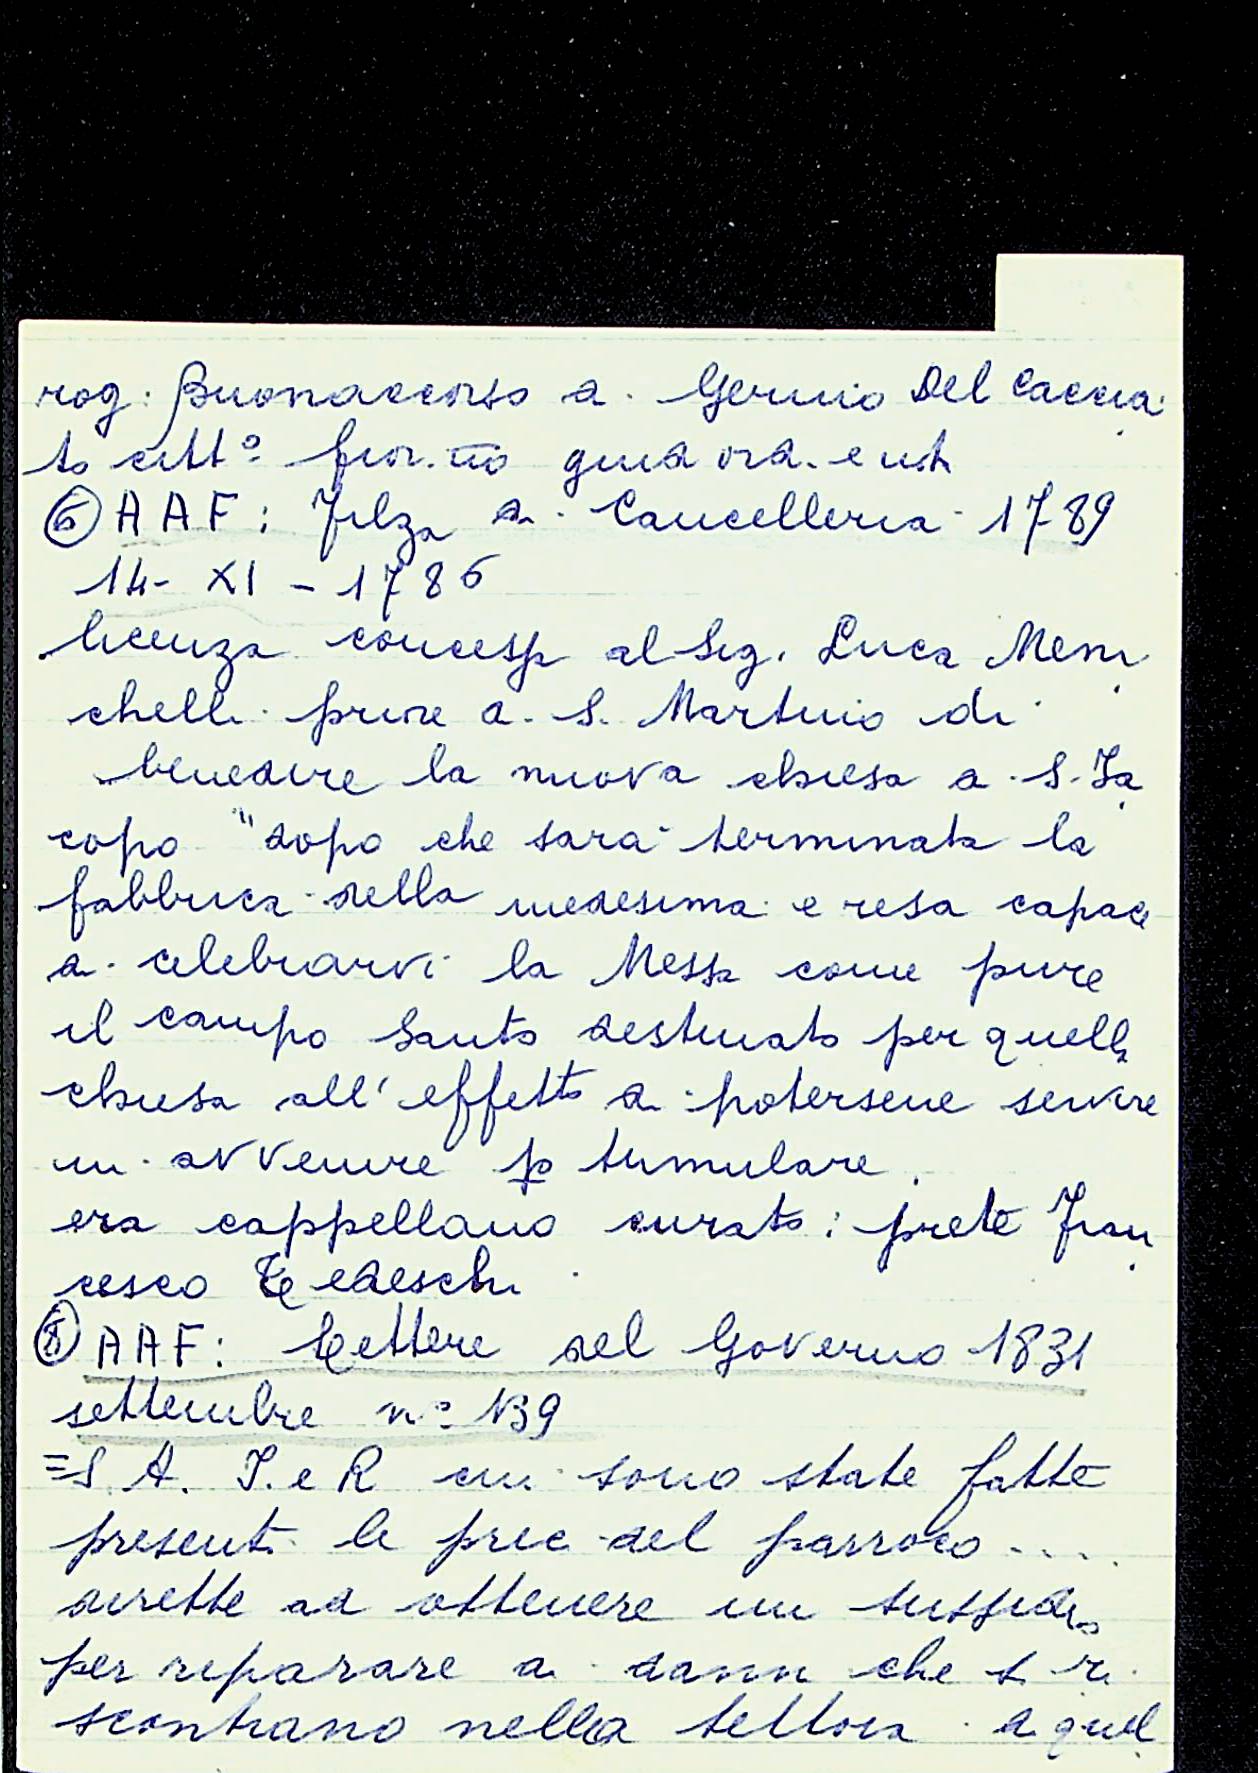 rog. Buonaccorso di Gemino Del Caccia
to citt° fior.no
⑥ AAF: Filza di Cancelleria 1789
14 - XI - 1786
licenza concessa al Sig. Luca Meni
chelli priore di S. Martino di
benedire la nuova chiesa di S. Ja
copo "dopo che sarà terminata la
fabbrica della medesima e resa capace
di celebrarvi la Messa come pure
il campo Santo destinato per quella
chiesa all'effetto di potersene servire
in avvenire p tumulare.
era cappellano curato: prete Fran
cesco Tedeschi
⑧ AAF: Lettere del Governo 1831
settembre n° 139
=S. A. I. e R cui sono state fatte
presenti le preci del parroco ....
dirette ad ottenere un sussidio
per riparare ai danni che si ri
scontrano nella tettoia di quel